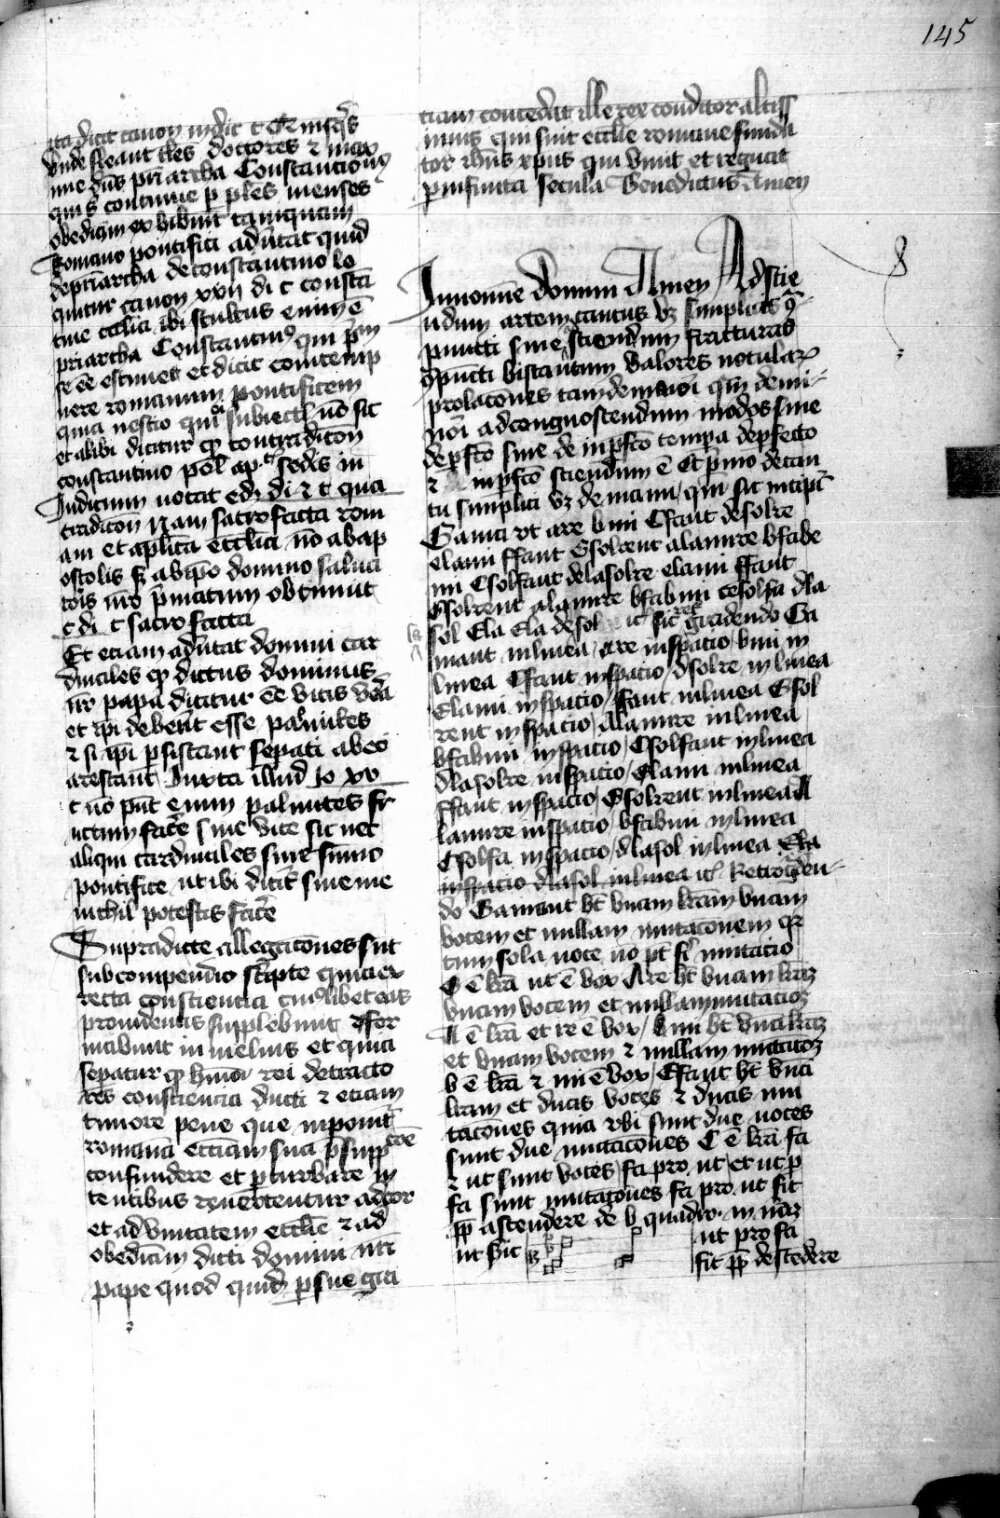 145
ita dicit canon in dic c
Unde fleant tales doctores et maxi
me dns priarcha Constantiono
qui continue per ples menses
obediam exhibuit tanquam
Romano pontifici advertat quid
de priarcha de constantino lo
quitur canon xxii di c consta
tine ecclia ibi scultus enim e
priarcha Constantinus qui pam
se ee estimet et dicit contemp
nere romanum pontificem
quia nescio qui subiect no sic
et alibi dicitur q contradicton
constantino pol ap sedis in
Judicium vocat ed di 2 c qua
tradicton Nam sacrosancta rom
am et aplica ecclia no ab ap
ostolis s ab ipo domino salua
tois nro primatum obtinuit
c di c sacrosancta
Et etiam advertat domini car
dinales q dictus dominus
nr papa dicitur ee vitis vera
et ipi debent esse palmites
2 si ipi psistant sepati ab eo
arescant Iuxta illud Jo xv
c no put enim palmites fr
uctum facere sine vite sic nec
aliqui cardinales sine sumo
pontifice ut ibi dicit sine me
nichil potestis facere
Supradicte allegacones sut
sub compendio scripte quia ex
recta consciencia cuiuslibet eas
prouidencias supplebunt
mabunt in melius et quia
sepatur q honor rei detracto
res consciencia ducti 2 etiam
timore pene que inponit
romana eccliam sua psupp
confundere et pturbare in
tentibus reuertentur ad cor
et ad vnitatem ecclie 2 ad
obediam dicti domini nri
pape quod quid p sue gra
tiam concedat ille rex conditor altiss
imus qui sint ecclie romane funda
tor ihus xpus qui vivit et regnat
p infinita secula Benedictus Amen
In nomine Domini Amen Ad scie
ndum artem cantus vz simplicis
puncti sine sciendum fracturas
puncti biscantum valores notular
prolacones tam de maiori qm de mi
nori ad congnoscendum modos sine
de pfcto sine de inpfcto tempra de pfecto
2 inpfcto sciendum e Et primo de can
tu simplici vz de manu qui sic incipit
Gama ut are bmi Cfaut desolre
elami ffaut Gsolreut alamire bfabe
mi Csolfaut delasolre elami ffaut
Gsolreut alamire bfabmi cesolfa dla
sol Ela Ela desol it sic gradendo Ga
maut in linea are in spacio bmi in
linea Cfaut in spacio dsolre in linea
Elami in spacio ffaut in linea Gsol
reut in spacio Alamire in linea
bfabmi in spacio Csolfaut in linea
dlasolre in spacio Elami in linea
ffaut in spacio Gsolreut in linea A
lamire in spacio bfabmi in linea
Csolfa in spacio dlasol in linea Ela
in spacio dlasol in linea it Retrogden
do Gamaut ht vnam lram vnam
vocem et nullam mutaconem qr
cum sola voce no pt fi mutacio
G e lra ut e vox Are ht vnam lram
vnam vocem et nullam mutacoz
A e lra et re e vox bmi ht vna lram
et vnam vocem 2 nullam mutacoz
b e lra 2 mi e vox Cfaut ht vna
lram et duas voces 2 duas mu
tacones quia vbi sunt due voces
sunt due mutacones C e lra fa
2 ut sunt voces fa pro ut et ut p
fa sunt mutacones fa pro ut fit
pp ascendere de b quadro in
ut sic
ut pro fa
fit pp descedere